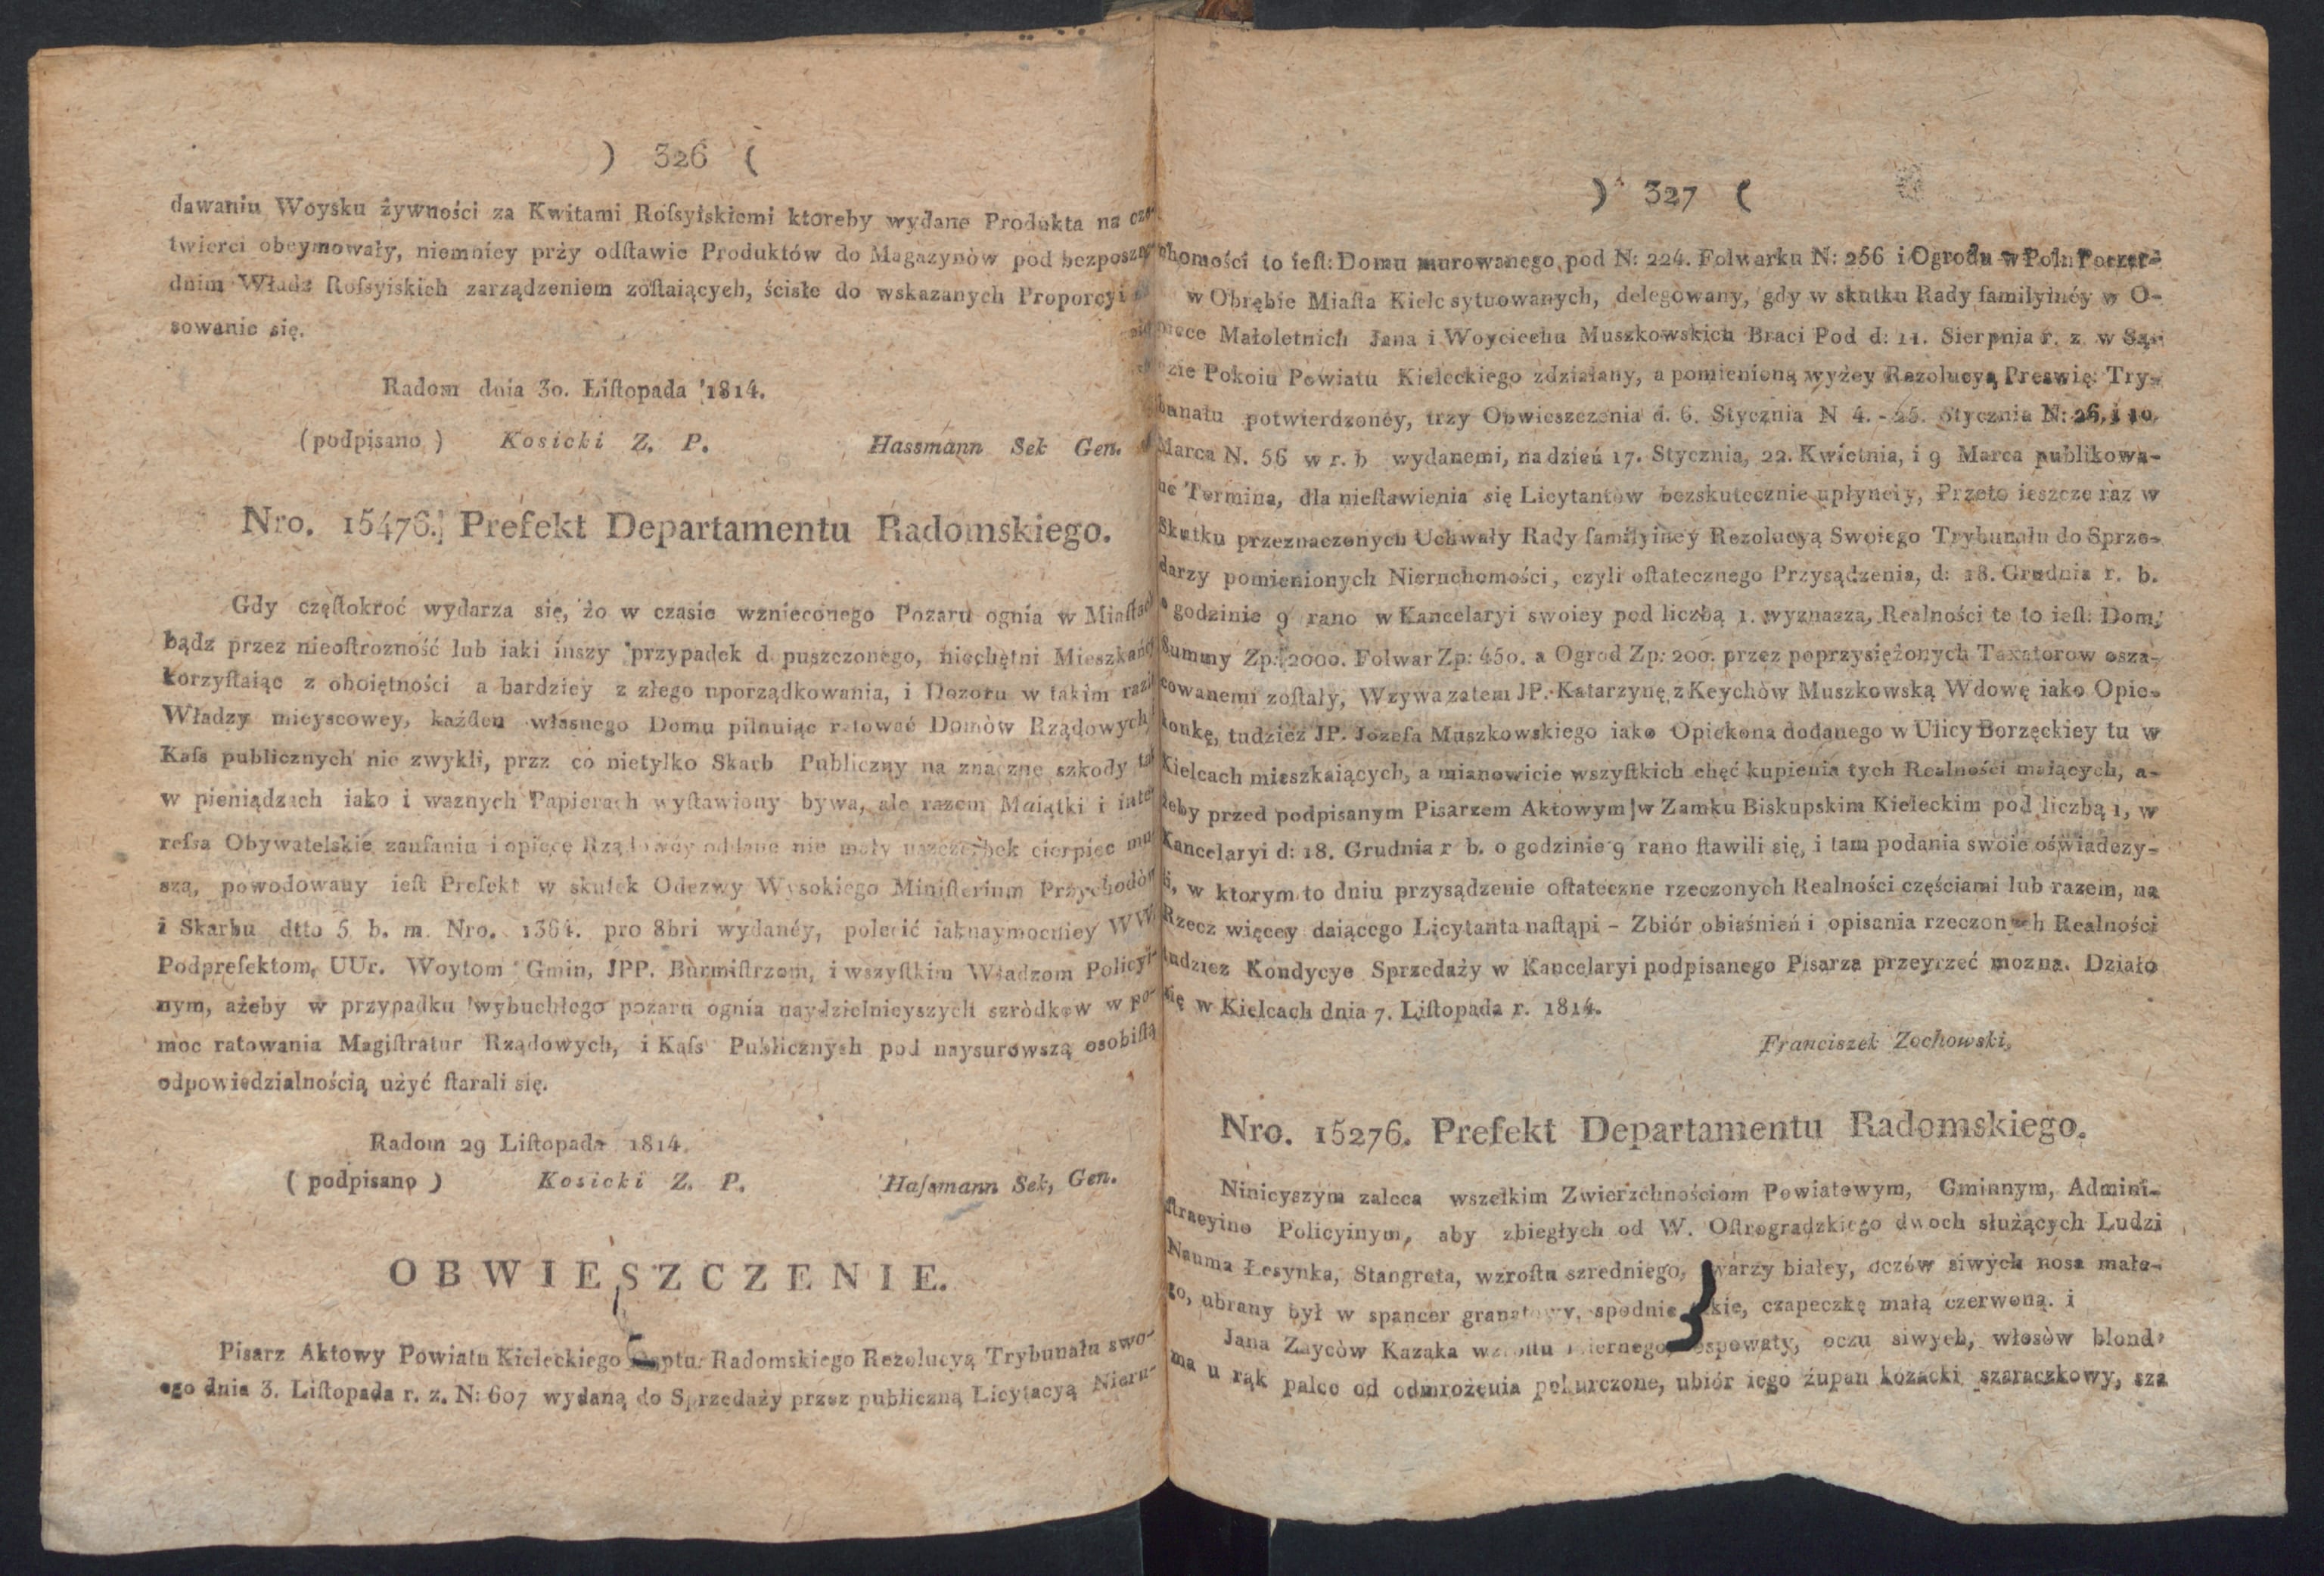 ) 326 (
dawaniu Woysku żywności za Kwitami Roſsyiskiemi ktoreby wydane Produkta na
twierci obeymowały, niemniey przy odſtawie Produktów do Magazynòw pod
dnim Władz Roſsyiskich zarządzeniem zoſtaiących, ścisłe do wskazanych Proporcyi
sowanie się.
Radom dnia 30. Liſtopada 1814.
(podpisano) Kosicki Z. P. Hassmann Sek Gen.
Nro. 15476. Prefekt Departamentu Radomskiego.
Gdy częſtokroć wydarza się, żo w czasie wznieconego Pozaru ognia w Miaſtach
bądz przez nieoſtrozność lub iaki inszy przypadek d puszczonego, niechętni Mieszkańcy
korzyſtaiąc z oboiętności a bardziey z złego uporządkowania, i Dozoru w takim razie
Władzy mieyscowey, każden własnego Domu pilnuiąc ratować Domòw Rządowych,
Kaſs publicznych nie zwykli, przz co nietylko Skarb Publiczny na znaczne szkody tak
w pieniądzach iako i waznych Papierach wyſtawiony bywa, ale razem Maiątki i inte-
reſsa Obywatelskie zaufaniu i opiece Rządowey oddane nie mały uszczerbek cierpiec mu-
szą, powodowany ieſt Prefekt w skutek Odezwy Wysokiego Miniſterium Przychodòw
i Skarbu dtto 5 b. m. Nro. 1364. pro 8bri wydanéy, polecić iaknaymocniey WW.
Podprefektom, UUr. Woytom Gmin, JPP. Burmiſtrzom, i wszyſtkim Władzom Policyi-
nym, ażeby w przypadku wybuchłego pozaru ognia naydzielnieyszych szròdkow w po-
moc ratowania Magiſtratur Rządowych, i Kaſs Publicznych pod naysurowszą osobiſtą
odpowiedzialnością użyć ſtarali się.
Radom 29 Liſtopada 1814.
(podpisano) Kosicki Z. P. Haſsmann Sek, Gen.
OBWIESZCZENIE.
Pisarz Aktowy Powiatu Kieleckiego Radomskiego Rezolucyą Trybunału swo-
ego dnia 3. Liſtopada r. z. N: 607 wydaną do Sprzedaży przez publiczną Licytacyą Nieru-
) 327 (
chomości to ieſt: Domu murowanego pod N: 224. Folwarku N: 256 i Ogrodu w
w Obrębie Miaſta Kielc sytuowanych, delegowany, gdy w skutku Rady familyinéy w O-
piece Małoletnich Jana i Woyciecha Muszkowskich Braci Pod d: 11. Sierpnia r. z. w Są-
dzie Pokoiu Powiatu Kieleckiego zdziałany, a pomienioną wyżey Rezolucyą Preswię: Try-
bunału potwierdzonéy, trzy Obwieszczenia d. 6. Stycznia N 4. - 25. Stycznia N: 26, i 10
Marca N. 56 w r. b wydanemi, na dzień 17. Stycznia, 22. Kwietnia, i 9 Marca publikowa-
ne Termina, dla nieſtawienia się Licytantòw bezskutecznie upłynęły, Przeto ieszcze raz w
Skutku przeznaczonych Uchwały Rady familyiney Rezolucyą Swoiego Trybunału do Sprze-
darzy pomienionych Nieruchomości, czyli oſtatecznego Przysądzenia, d: 18. Grudnia r. b.
o godzinie 9 rano w Kancelaryi swoiey pod liczbą 1. wyznasza, Realności te to ieſt: Dom,
Summy Zp: 2000. Folwar Zp: 450. a Ogrod Zp: 200. przez poprzysiężonych Taxatorow osza-
cowanemi zoſtały, Wzywa zatem JP. Katarzynę z Keychòw Muszkowską Wdowę iako Opie-
konkę, tudziez JP. Jozefa Muszkowskiego iako Opiekona dodanego w Ulicy Borzęckiey tu w
Kielcach mieszkaiących, a mianowicie wszyſtkich chęć kupienia tych Realności maiących, a-
żeby przed podpisanym Pisarzem Aktowym w Zamku Biskupskim Kieleckim pod liczbą 1, w
Kancelaryi d: 18. Grudnia r b. o godzinie 9 rano ſtawili się, i tam podania swoie oświadczy-
li, w ktorym to dniu przysądzenie oſtateczne rzeczonych Realności częściami lub razem, na
Rzecz więcey daiącego Licytanta naſtąpi - Zbiór obiaśnień i opisania rzeczonych Realności
tudziez Kondycye Sprzedaży w Kancelaryi podpisanego Pisarza przeyrzeć mozna. Działo
się w Kielcach dnia 7. Liſtopada r. 1814.
Franciszek Zochowski,
Nro. 15276. Prefekt Departamentu Radomskiego.
Ninieyszym zaleca wszelkim Zwierzchnościom Powiatowym, Gminnym, Admini-
ſtracyino Policyinym, aby zbiegłych od W. Oſtrogradzkiego dwoch służących Ludzi
Nauma Łesynka, Stangreta, wzroſtu szredniego, twarzy białey, oczów siwych nosa małe-
go, ubrany był w spancer granatowy, spodnie czapeczkę małą czerwoną. i
Jana Zaycòw Kazaka wzroſtu ospowaty, oczu siwych, włosòw blond
ma u rąk palce od odmrożenia pokurczone, ubiór iego żupan kozacki szaraczkowy, sza